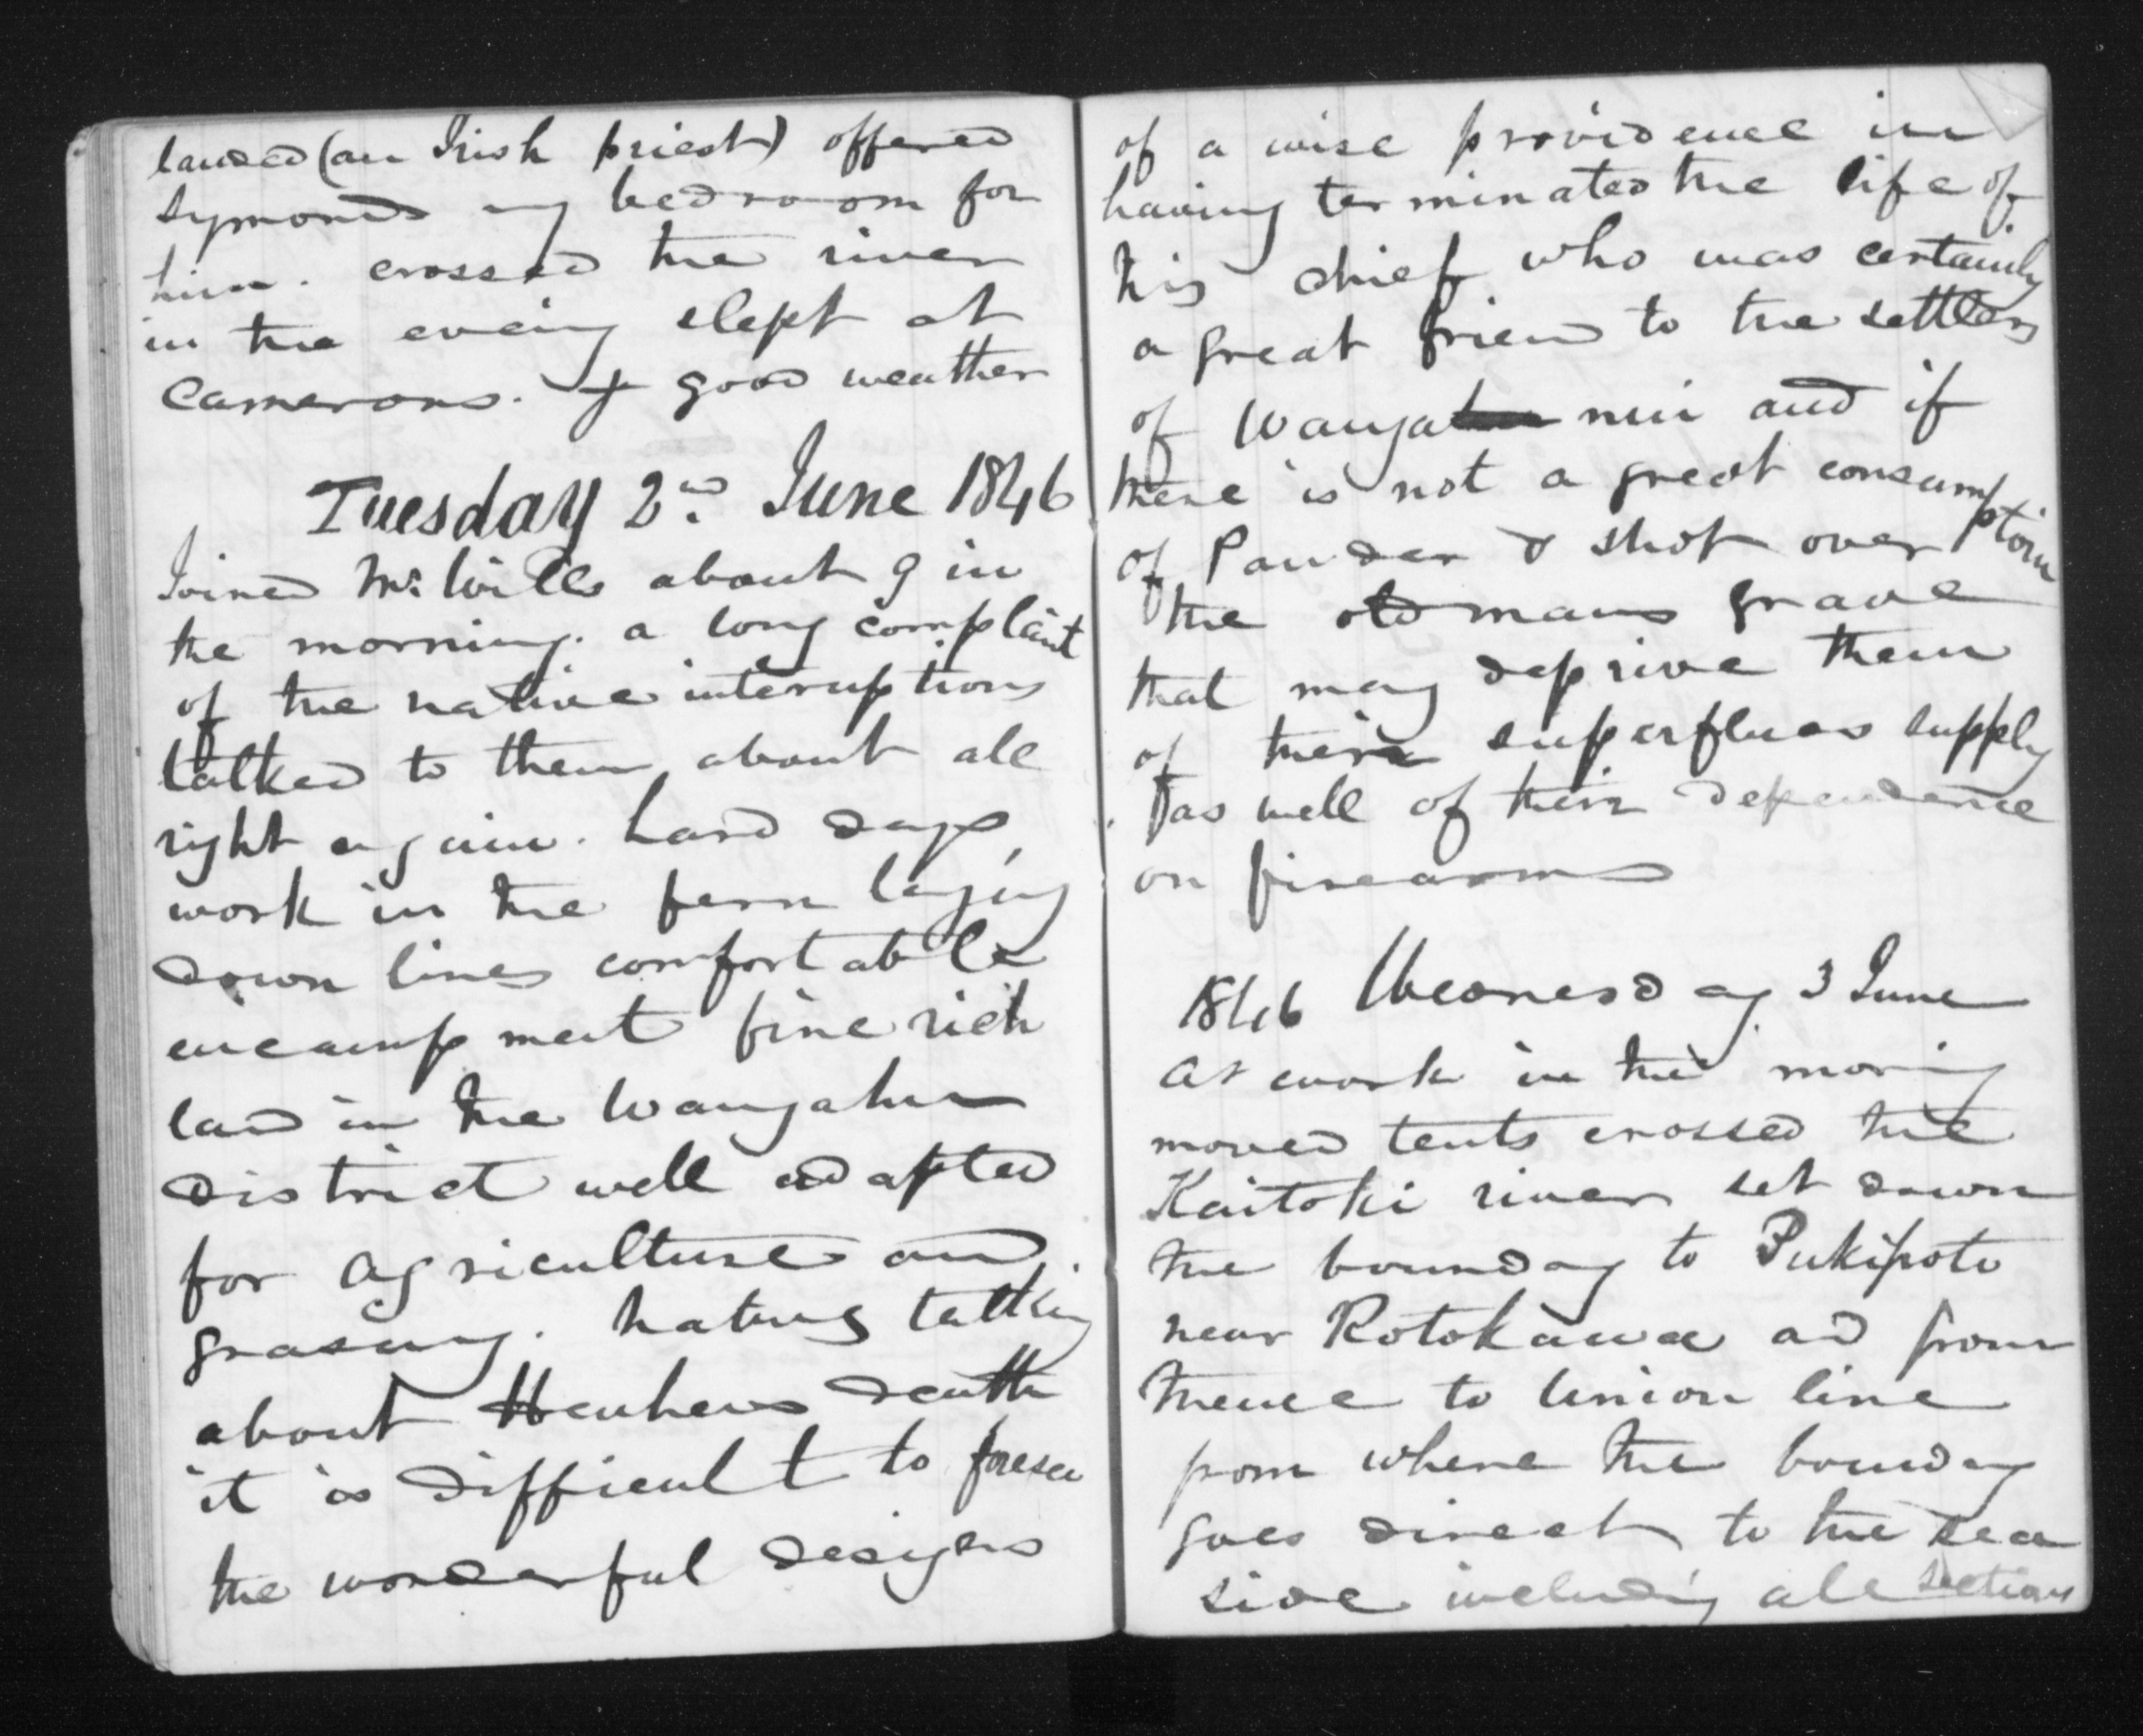 landed (an Irish priest) offered
Symonds my bedroom for
him. crossed the river
in the evening slept at
Camerons. & good weather
Tuesday 2nd June 1846
Joined Mr Wills about 9 in
the morning. a long complaint
of the native interuptions
talked to them about all
right again. hard days,
work in the fern laying
down lines comfortable
encampment fine rich
land in the Wangahu
district well adapted
for agriculture and
grasing. natives talking
about Heuheus death
it is difficult to foresee
the wonderful designs
of a wise providence in
having terminated the life of
his chief who was certainly
a great friend to the settlers
of Wanga nui and if
there is not a great consumption
of Pauder & shot over
the old mans grave
that may deprive them
of their superfluos supply
as well of their dependence
on firearms
1846 Wednesday 3 June
at work in the morning
moved tents crossed the
Kaitoki river set down
the bounday to Pukipoto
near Rotokawa and from
thence to Union line
from where the bounday
goes direct to the sea
side including all sections